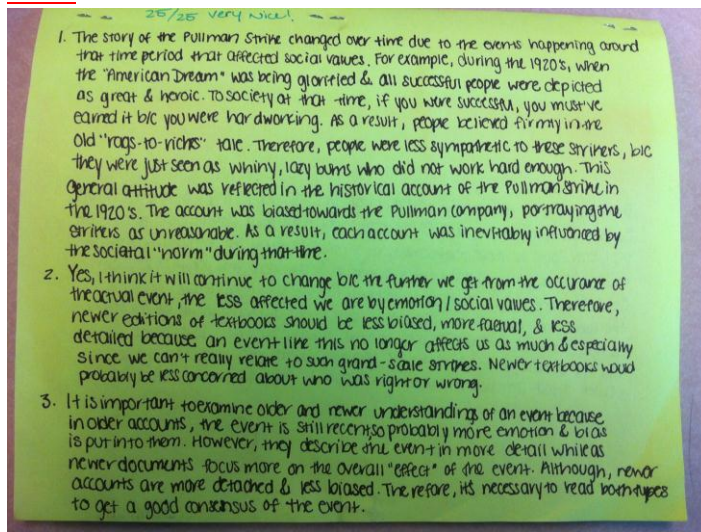 25/25 Very Nice!
1. The story of the Pullman Strike changed over time due to the events happening around
that time period that affected social values. For example, during the 1920's, when
the "American Dream" was being glorified & all successful people were depicted
as great & heroic. To society at that time, if you were successful, you must've
earned it b/c you were hardworking. As a result, people believed firmly in the
old "rags-to-riches" tale. Therefore, people were less sympathetic to these strikers, b/c
they were just seen as whiny, lazy bums who did not work hard enough. This
general attitude was reflected in the historical account of the Pullman Strike in
the 1920's. The account was biased towards the Pullman company, portraying the
strikers as unreasonable. As a result, each account was inevitably influenced by
the societal "norm" during that time.
2. Yes, I think it will continue to change b/c the further we get from the occurance of
the actual event, the less affected we are by emotion / social values. Therefore,
newer editions of textbooks should be less biased, more factual, & less
detailed because an event like this no longer affects us as much & especially
since we can't really relate to such grand-scale strikes. Newer textbooks would
probably be less concerned about who was right or wrong.
3. It is important to examine older and newer understandings of an event because
in older accounts, the event is still recent, so probably more emotion & bias
is put into them. However, they describe the event in more detail while as
newer documents focus more on the overall "effect" of the event. Although, newer
accounts are more detached & less biased. Therefore, it's necessary to read both types
to get a good consensus of the event.